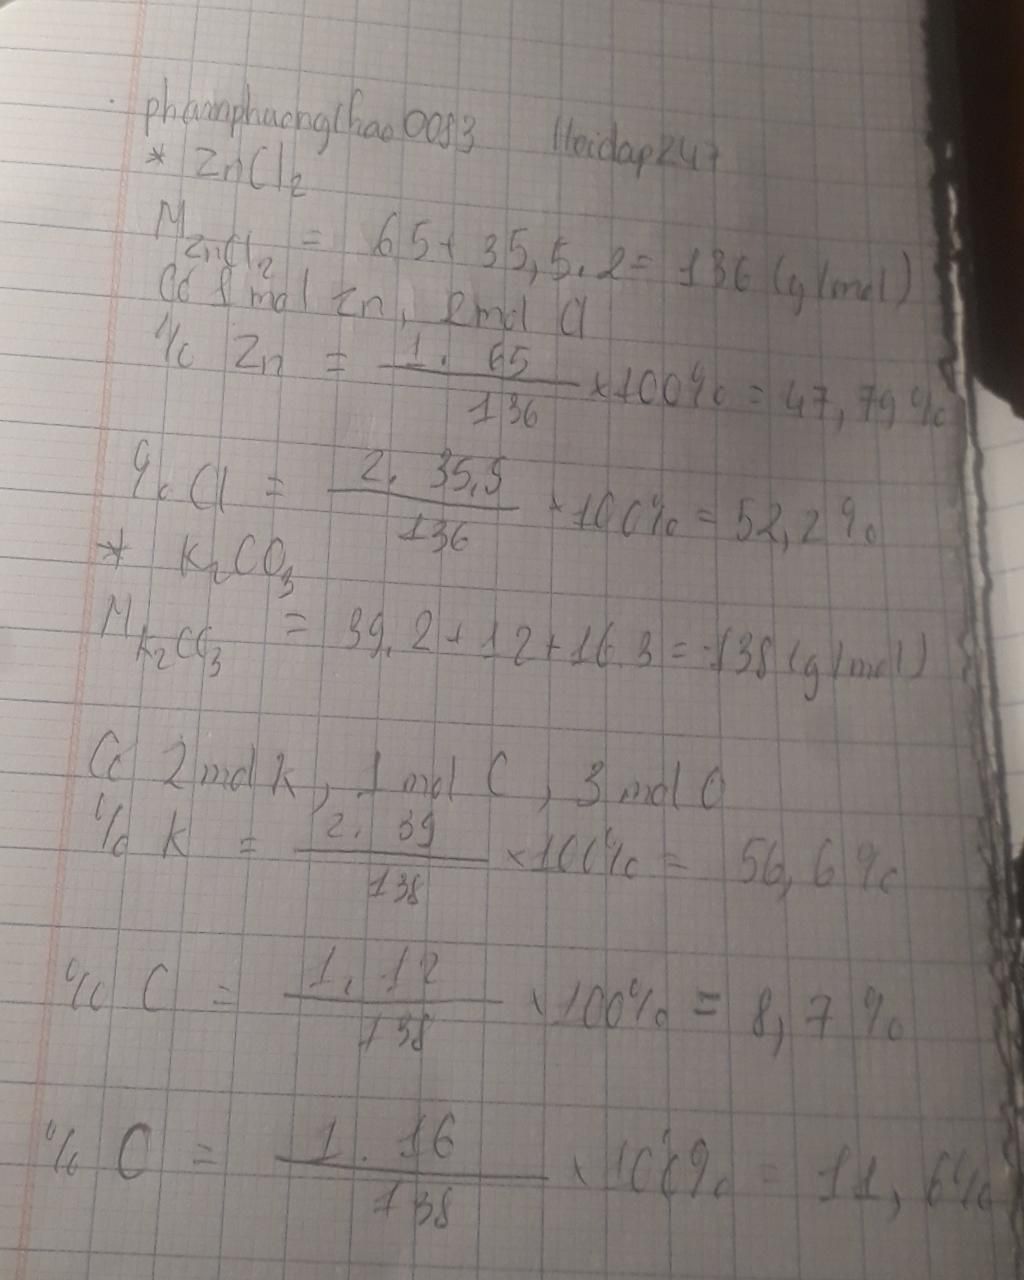 phamphuongthao0083 Hoidap247
* ZnCl₂
M ZnCl₂ = 65 + 35,5.2 = 136 (g/mol)
Có 1 mol Zn, 2 mol Cl
% Zn = 1. 65 / 136 ×100% = 47,79%
% Cl = 2. 35,5 / 136 ×100% = 52,2%
* K₂CO₃
M K₂CO₃ = 39.2 + 12 + 16.3 = 138 (g/mol)
Có 2 mol K, 1 mol C, 3 mol O
% K = 2. 39 / 138 ×100% = 56,6%
% C = 1. 12 / 138 ×100% = 8,7%
% O = 1. 16 / 138 ×100% = 11,6%